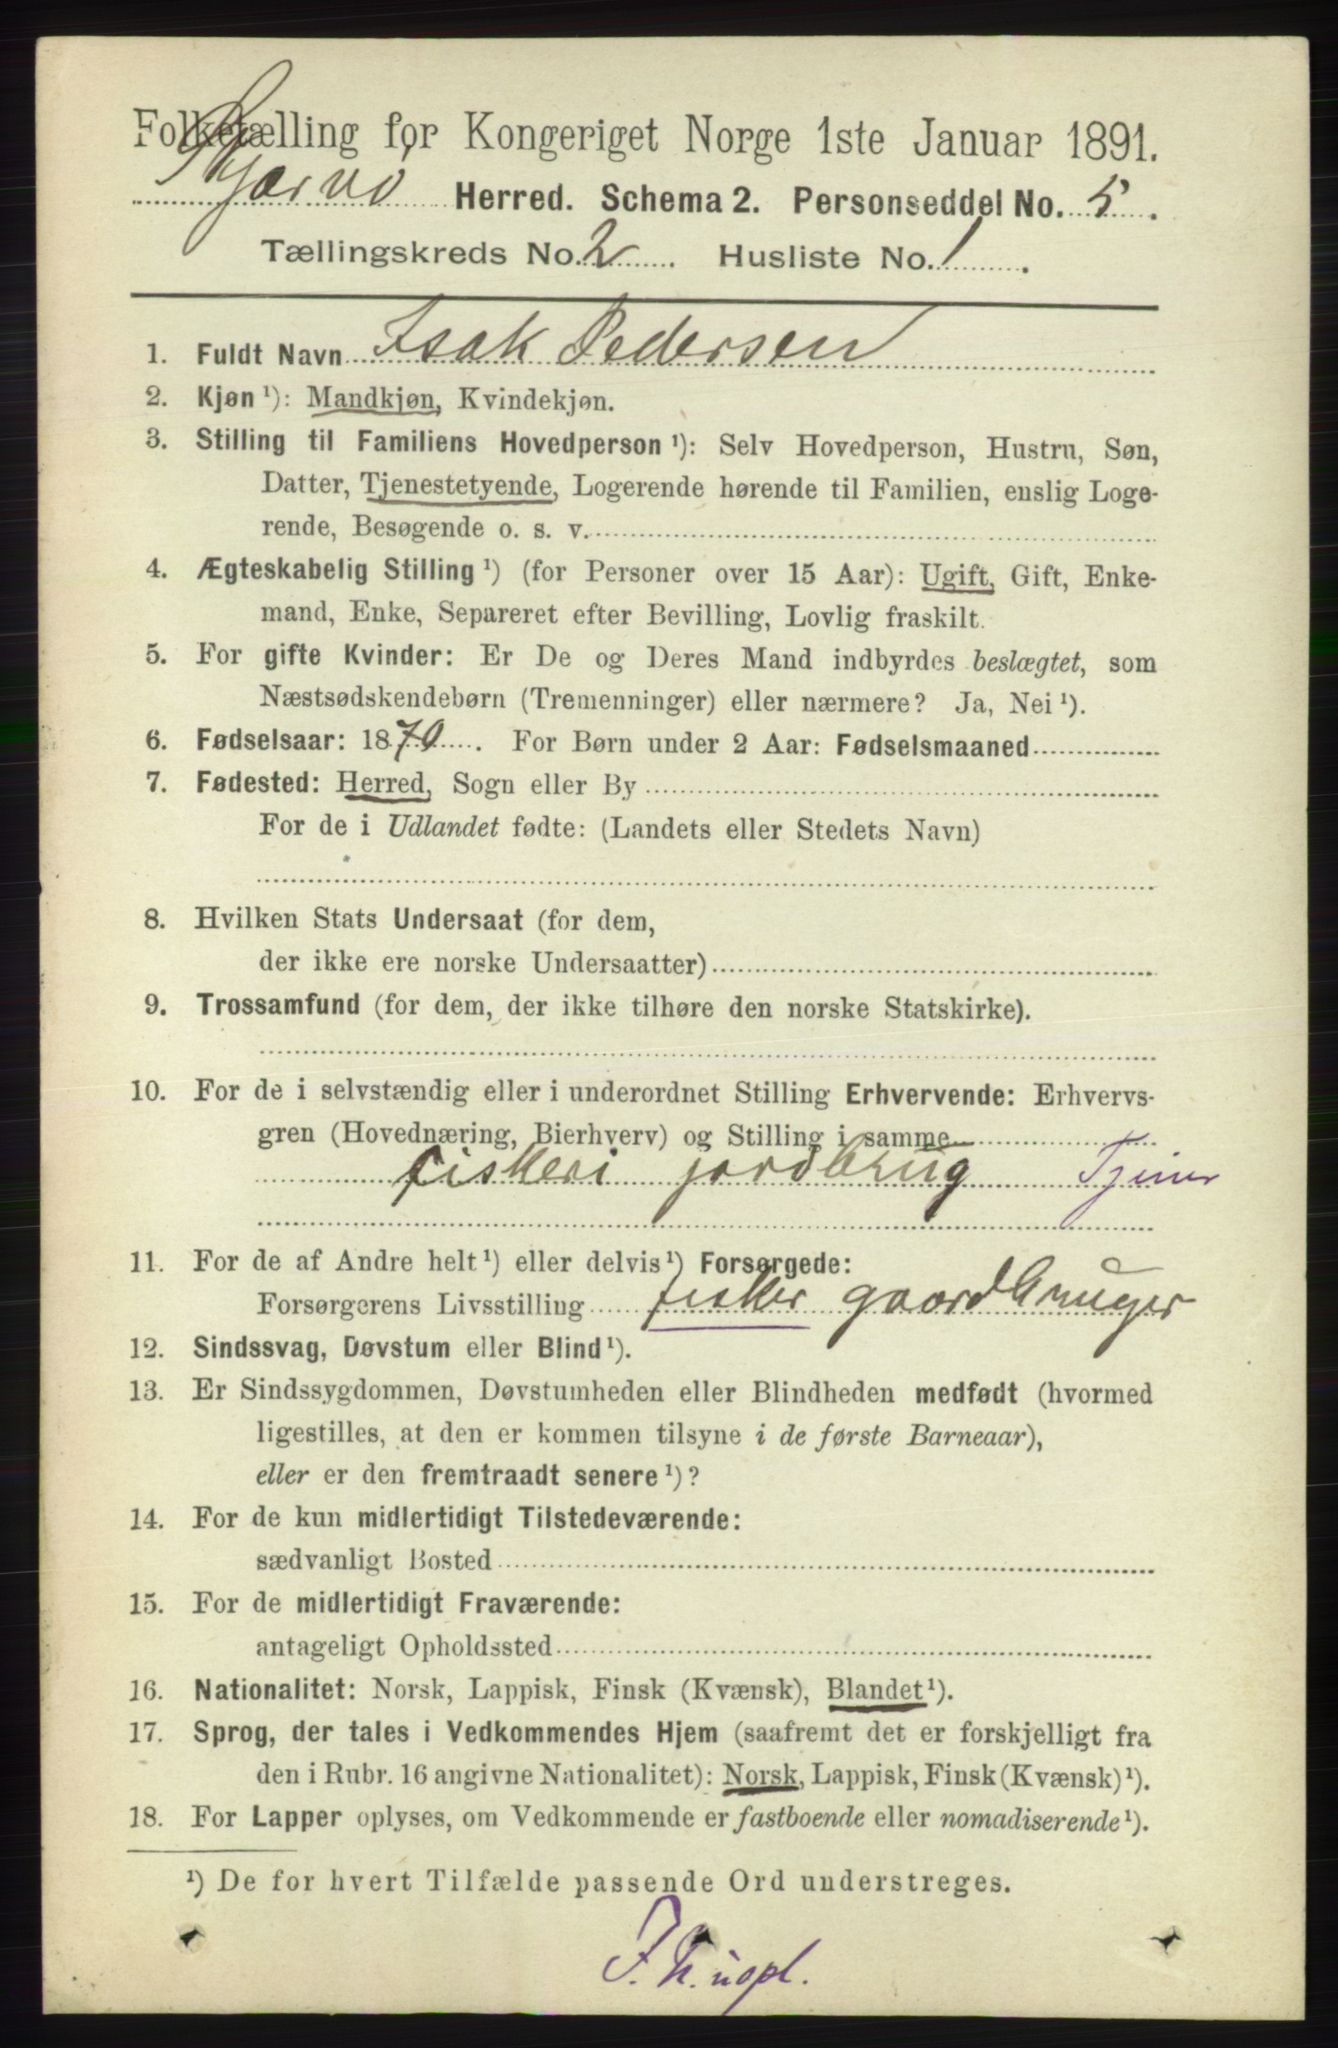 Folketælling for Kongeriget Norge 1ste Januar 1891.
Skjærvø Herred. Schema 2. Personseddel No. 5.
Tællingskreds No. 2. Husliste No. 1.
1. Fuldt Navn Isak Pedersen
2. Kjøn ¹): Mandkjøn, Kvindekjøn.
3. Stilling til Familiens Hovedperson ¹): Selv Hovedperson, Hustru, Søn,
Datter, Tjenestetyende, Logerende hørende til Familien, enslig Loge-
rende, Besøgende o. s. v.
4. Ægteskabelig Stilling ¹) (for Personer over 15 Aar): Ugift, Gift, Enke-
mand, Enke, Separeret efter Bevilling, Lovlig fraskilt.
5. For gifte Kvinder: Er De og Deres Mand indbyrdes beslægtet, som
Næstsødskendebørn (Tremenninger) eller nærmere? Ja, Nei ¹).
6. Fødselsaar: 1870. For Børn under 2 Aar: Fødselsmaaned
7. Fødested: Herred, Sogn eller By
For de i Udlandet fødte: (Landets eller Stedets Navn)
8. Hvilken Stats Undersaat (for dem,
der ikke ere norske Undersaatter)
9. Trossamfund (for dem, der ikke tilhøre den norske Statskirke).
10. For de i selvstændig eller i underordnet Stilling Erhvervende: Erhvervs-
gren (Hovednæring, Bierhverv) og Stilling i samme
fiskeri jordbrug Tjener
11. For de af Andre helt ¹) eller delvis ¹) Forsørgede:
Forsørgerens Livsstilling fisker gaardbruger
12. Sindssvag, Døvstum eller Blind ¹).
13. Er Sindssygdommen, Døvstumheden eller Blindheden medfødt (hvormed
ligestilles, at den er kommen tilsyne i de første Barneaar),
eller er den fremtraadt senere ¹)?
14. For de kun midlertidigt Tilstedeværende:
sædvanligt Bosted
15. For de midlertidigt Fraværende:
antageligt Opholdssted
16. Nationalitet: Norsk, Lappisk, Finsk (Kvænsk), Blandet ¹).
17. Sprog, der tales i Vedkommendes Hjem (saafremt det er forskjelligt fra
den i Rubr. 16 angivne Nationalitet): Norsk, Lappisk, Finsk (Kvænsk) ¹).
18. For Lapper oplyses, om Vedkommende er fastboende eller nomadiserende ¹).
¹) De for hvert Tilfælde passende Ord understreges.